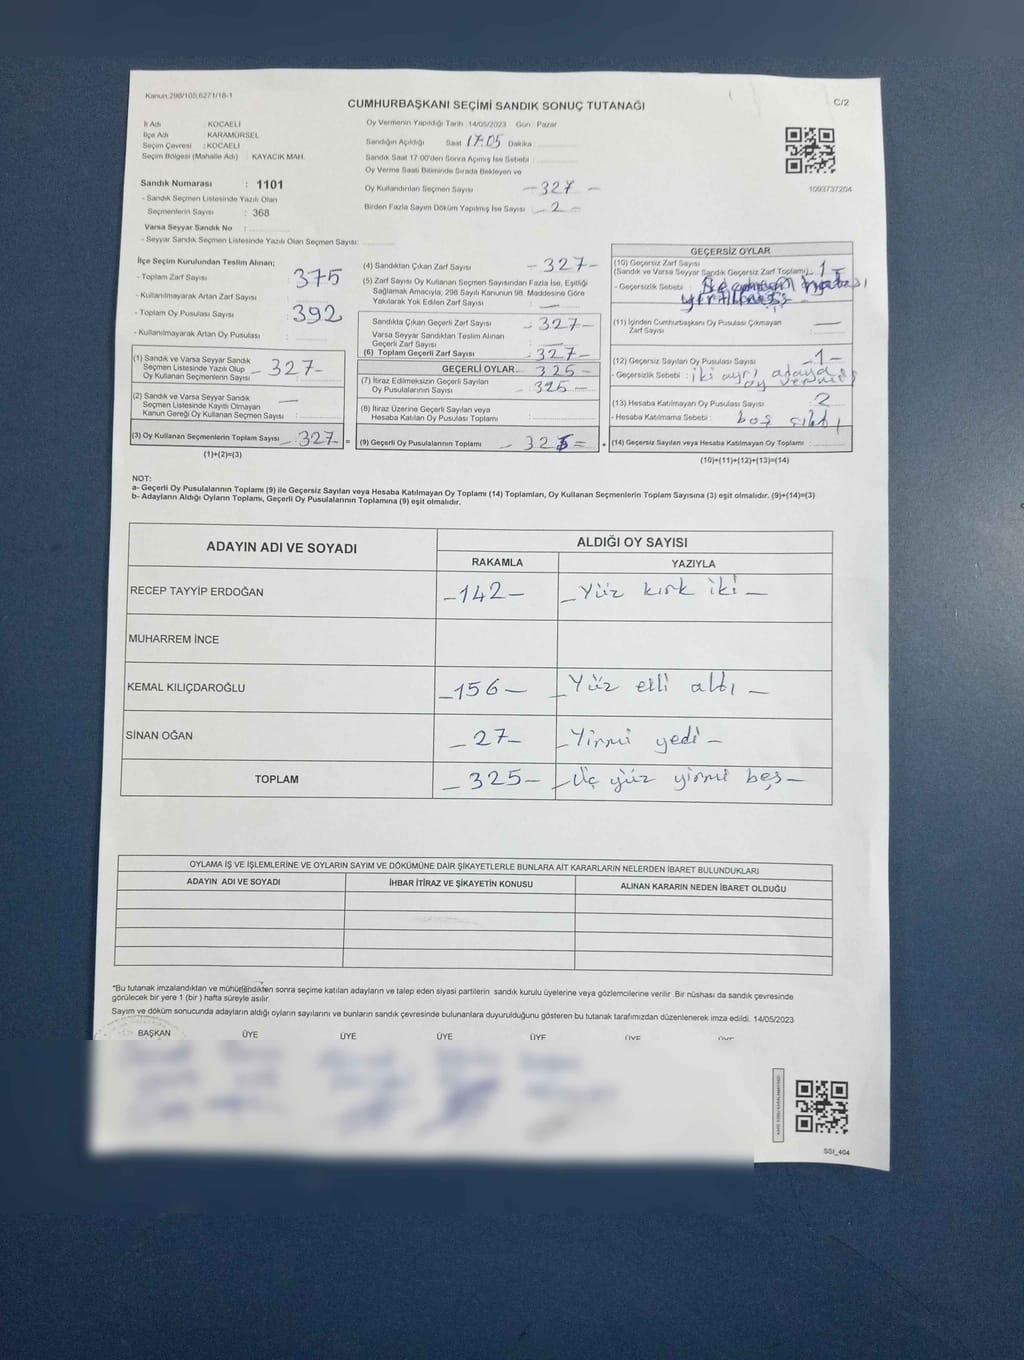 Kanun;298/105;6271/18-1
CUMHURBAŞKANI SEÇİMİ SANDIK SONUÇ TUTANAĞI
C/2
İl Adı : KOCAELİ
İlçe Adı : KARAMÜRSEL
Seçim Çevresi : KOCAELİ
Seçim Bölgesi (Mahalle Adı) : KAYACIK MAH.
Sandık Numarası : 1101
- Sandık Seçmen Listesinde Yazılı Olan
Seçmenlerin Sayısı : 368
Varsa Seyyar Sandık No :
- Seyyar Sandık Seçmen Listesinde Yazılı Olan Seçmen Sayısı:
Oy Vermenin Yapıldığı Tarih :14/05/2023 Gün : Pazar
Sandığın Açıldığı Saat 17:05 Dakika
Sandık Saat 17.00'den Sonra Açımış İse Sebebi :
Oy Verme Saati Bitiminde Sırada Bekleyen ve
Oy Kullandırılan Seçmen Sayısı – 327 –
Birden Fazla Sayım Döküm Yapılmış İse Sayısı : – 2 –
1093737204
İlçe Seçim Kurulundan Teslim Alınan;
- Toplam Zarf Sayısı : 375
- Kullanılmayarak Artan Zarf Sayısı :
- Toplam Oy Pusulası Sayısı : 392
- Kullanılmayarak Artan Oy Pusulası :
(1) Sandık ve Varsa Seyyar Sandık
Seçmen Listesinde Yazılı Olup
Oy Kullanan Seçmenlerin Sayısı : – 327 –
(2) Sandık ve Varsa Seyyar Sandık
Seçmen Listesinde Kayıtlı Olmayan
Kanun Gereği Oy Kullanan Seçmen Sayısı : —
(3) Oy Kullanan Seçmenlerin Toplam Sayısı : – 327 – =
(1)+(2)=(3)
(4) Sandıktan Çıkan Zarf Sayısı – 327 –
(5) Zarf Sayısı Oy Kullanan Seçmen Sayısından Fazla İse, Eşitliği
Sağlamak Amacıyla, 298 Sayılı Kanunun 98. Maddesine Göre
Yakılarak Yok Edilen Zarf Sayısı : —
Sandıkta Çıkan Geçerli Zarf Sayısı : – 327 –
Varsa Seyyar Sandıktan Teslim Alınan
Geçerli Zarf Sayısı :
(6) Toplam Geçerli Zarf Sayısı : – 327 –
GEÇERLİ OYLAR – 325 –
(7) İtiraz Edilmeksizin Geçerli Sayılan
Oy Pusulalarının Sayısı : – 325 –
(8) İtiraz Üzerine Geçerli Sayılan veya
Hesaba Katılan Oy Pusulası Toplamı :
(9) Geçerli Oy Pusulalarının Toplamı – 325 = +
GEÇERSİZ OYLAR
(10) Geçersiz Zarf Sayısı
(Sandık ve Varsa Seyyar Sandık Geçersiz Zarf Toplamı) – 1 –
- Geçersizlik Sebebi :
(11) İçinden Cumhurbaşkanı Oy Pusulası Çıkmayan
Zarf Sayısı : —
(12) Geçersiz Sayılan Oy Pusulası Sayısı : – 1 –
- Geçersizlik Sebebi : iki ayrı adaya
oy vermiş
(13) Hesaba Katılmayan Oy Pusulası Sayısı : 2
- Hesaba Katılmama Sebebi : boş çıktı
(14) Geçersiz Sayılan veya Hesaba Katılmayan Oy Toplamı :
(10)+(11)+(12)+(13)=(14)
NOT:
a- Geçerli Oy Pusulalarının Toplamı (9) ile Geçersiz Sayılan veya Hesaba Katılmayan Oy Toplamı (14) Toplamları, Oy Kullanan Seçmenlerin Toplam Sayısına (3) eşit olmalıdır. (9)+(14)=(3)
b- Adayların Aldığı Oyların Toplamı, Geçerli Oy Pusulalarının Toplamına (9) eşit olmalıdır.
ADAYIN ADI VE SOYADI
ALDIĞI OY SAYISI
RAKAMLA YAZIYLA
RECEP TAYYİP ERDOĞAN – 142 – – Yüz kırk iki –
MUHARREM İNCE
KEMAL KILIÇDAROĞLU – 156 – – Yüz elli altı –
SİNAN OĞAN – 27 – – Yirmi yedi –
TOPLAM – 325 – – Üç yüz yirmi beş –
OYLAMA İŞ VE İŞLEMLERİNE VE OYLARIN SAYIM VE DÖKÜMÜNE DAİR ŞİKAYETLERLE BUNLARA AİT KARARLARIN NELERDEN İBARET BULUNDUKLARI
ADAYIN ADI VE SOYADI İHBAR İTİRAZ VE ŞİKAYETİN KONUSU ALINAN KARARIN NEDEN İBARET OLDUĞU
*Bu tutanak imzalandıktan ve mühürlendikten sonra seçime katılan adayların ve talep eden siyasi partilerin sandık kurulu üyelerine veya gözlemcilerine verilir. Bir nüshası da sandık çevresinde
görülecek bir yere 1 (bir ) hafta süreyle asılır.
Sayım ve döküm sonucunda adayların aldığı oyların sayılarını ve bunların sandık çevresinde bulunanlara duyurulduğunu gösteren bu tutanak tarafımızdan düzenlenerek imza edildi. 14/05/2023
BAŞKAN ÜYE ÜYE ÜYE ÜYE ÜYE ÜYE
SSI_404